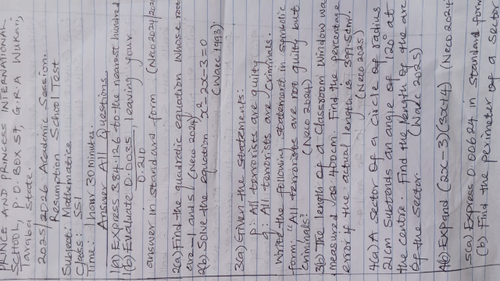 PRINCE AND PRINCES INTERNATIONAL
School, P.O. BOX 57, G.R.A Wukari,
Taraba State.
2025/2026 Academic Session.
Resumption School Test
Subject: Mathematics
Class: SS1
Time: 1 hour 30 minutes.
Answer All Questions
1(a) Express 384.126 to the nearest hundred
1(b) Evaluate 0.0035, leaving your
0.210
answer in standard form
2(a) Find the quadratic equation whose roots
are -1 and 5! (Neco 2024)
2(b) Solve the equation x²-2x-3=0
(Waec 1993)
3(a) Given the Statements:
p: All terrorists are guilty
q: All terrorists are Criminals.
Write the following statement in Symbolic
form: "All terrorists are not guilty but
Criminals." (Neco 2024)
3(b) The length of a Classroom Window was
measured as 400cm. Find the percentage
error if the actual length is
(Neco 2025)
4(a) A Sector of a Circle of radius
21cm Subtends an angle of 120° at
the centre. Find the length of the arc
of the sector. (Waec 2025)
4(b) Expand (2x-3)(3x+4) (Neco 2024)
5(a) Express 0.00624 in Standard form
(b) Find the perimeter of a sector